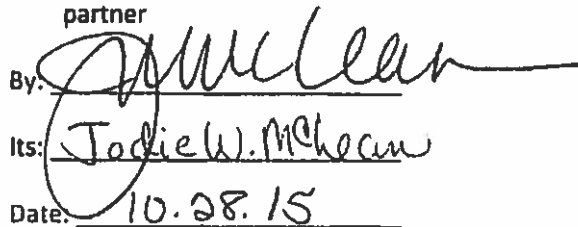 partner
By: JWMcLean
Its: Jodie W. McLean
Date: 10.28.15